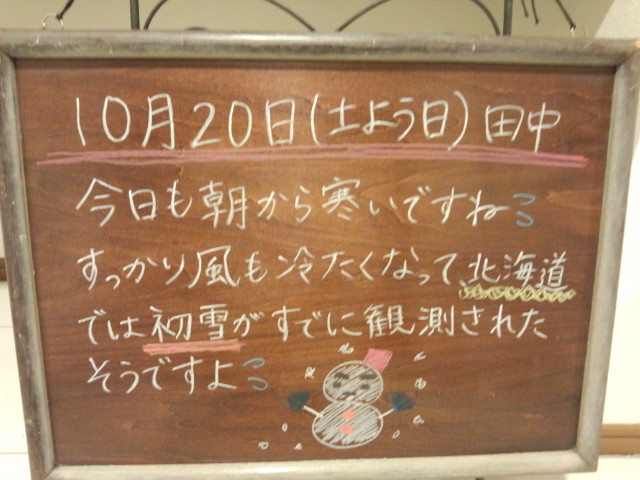 10月20日(土よう日) 田中
今日も朝から寒いですね
すっかり風も冷たくなって、北海道
では初雪がすでに観測された
そうですよ